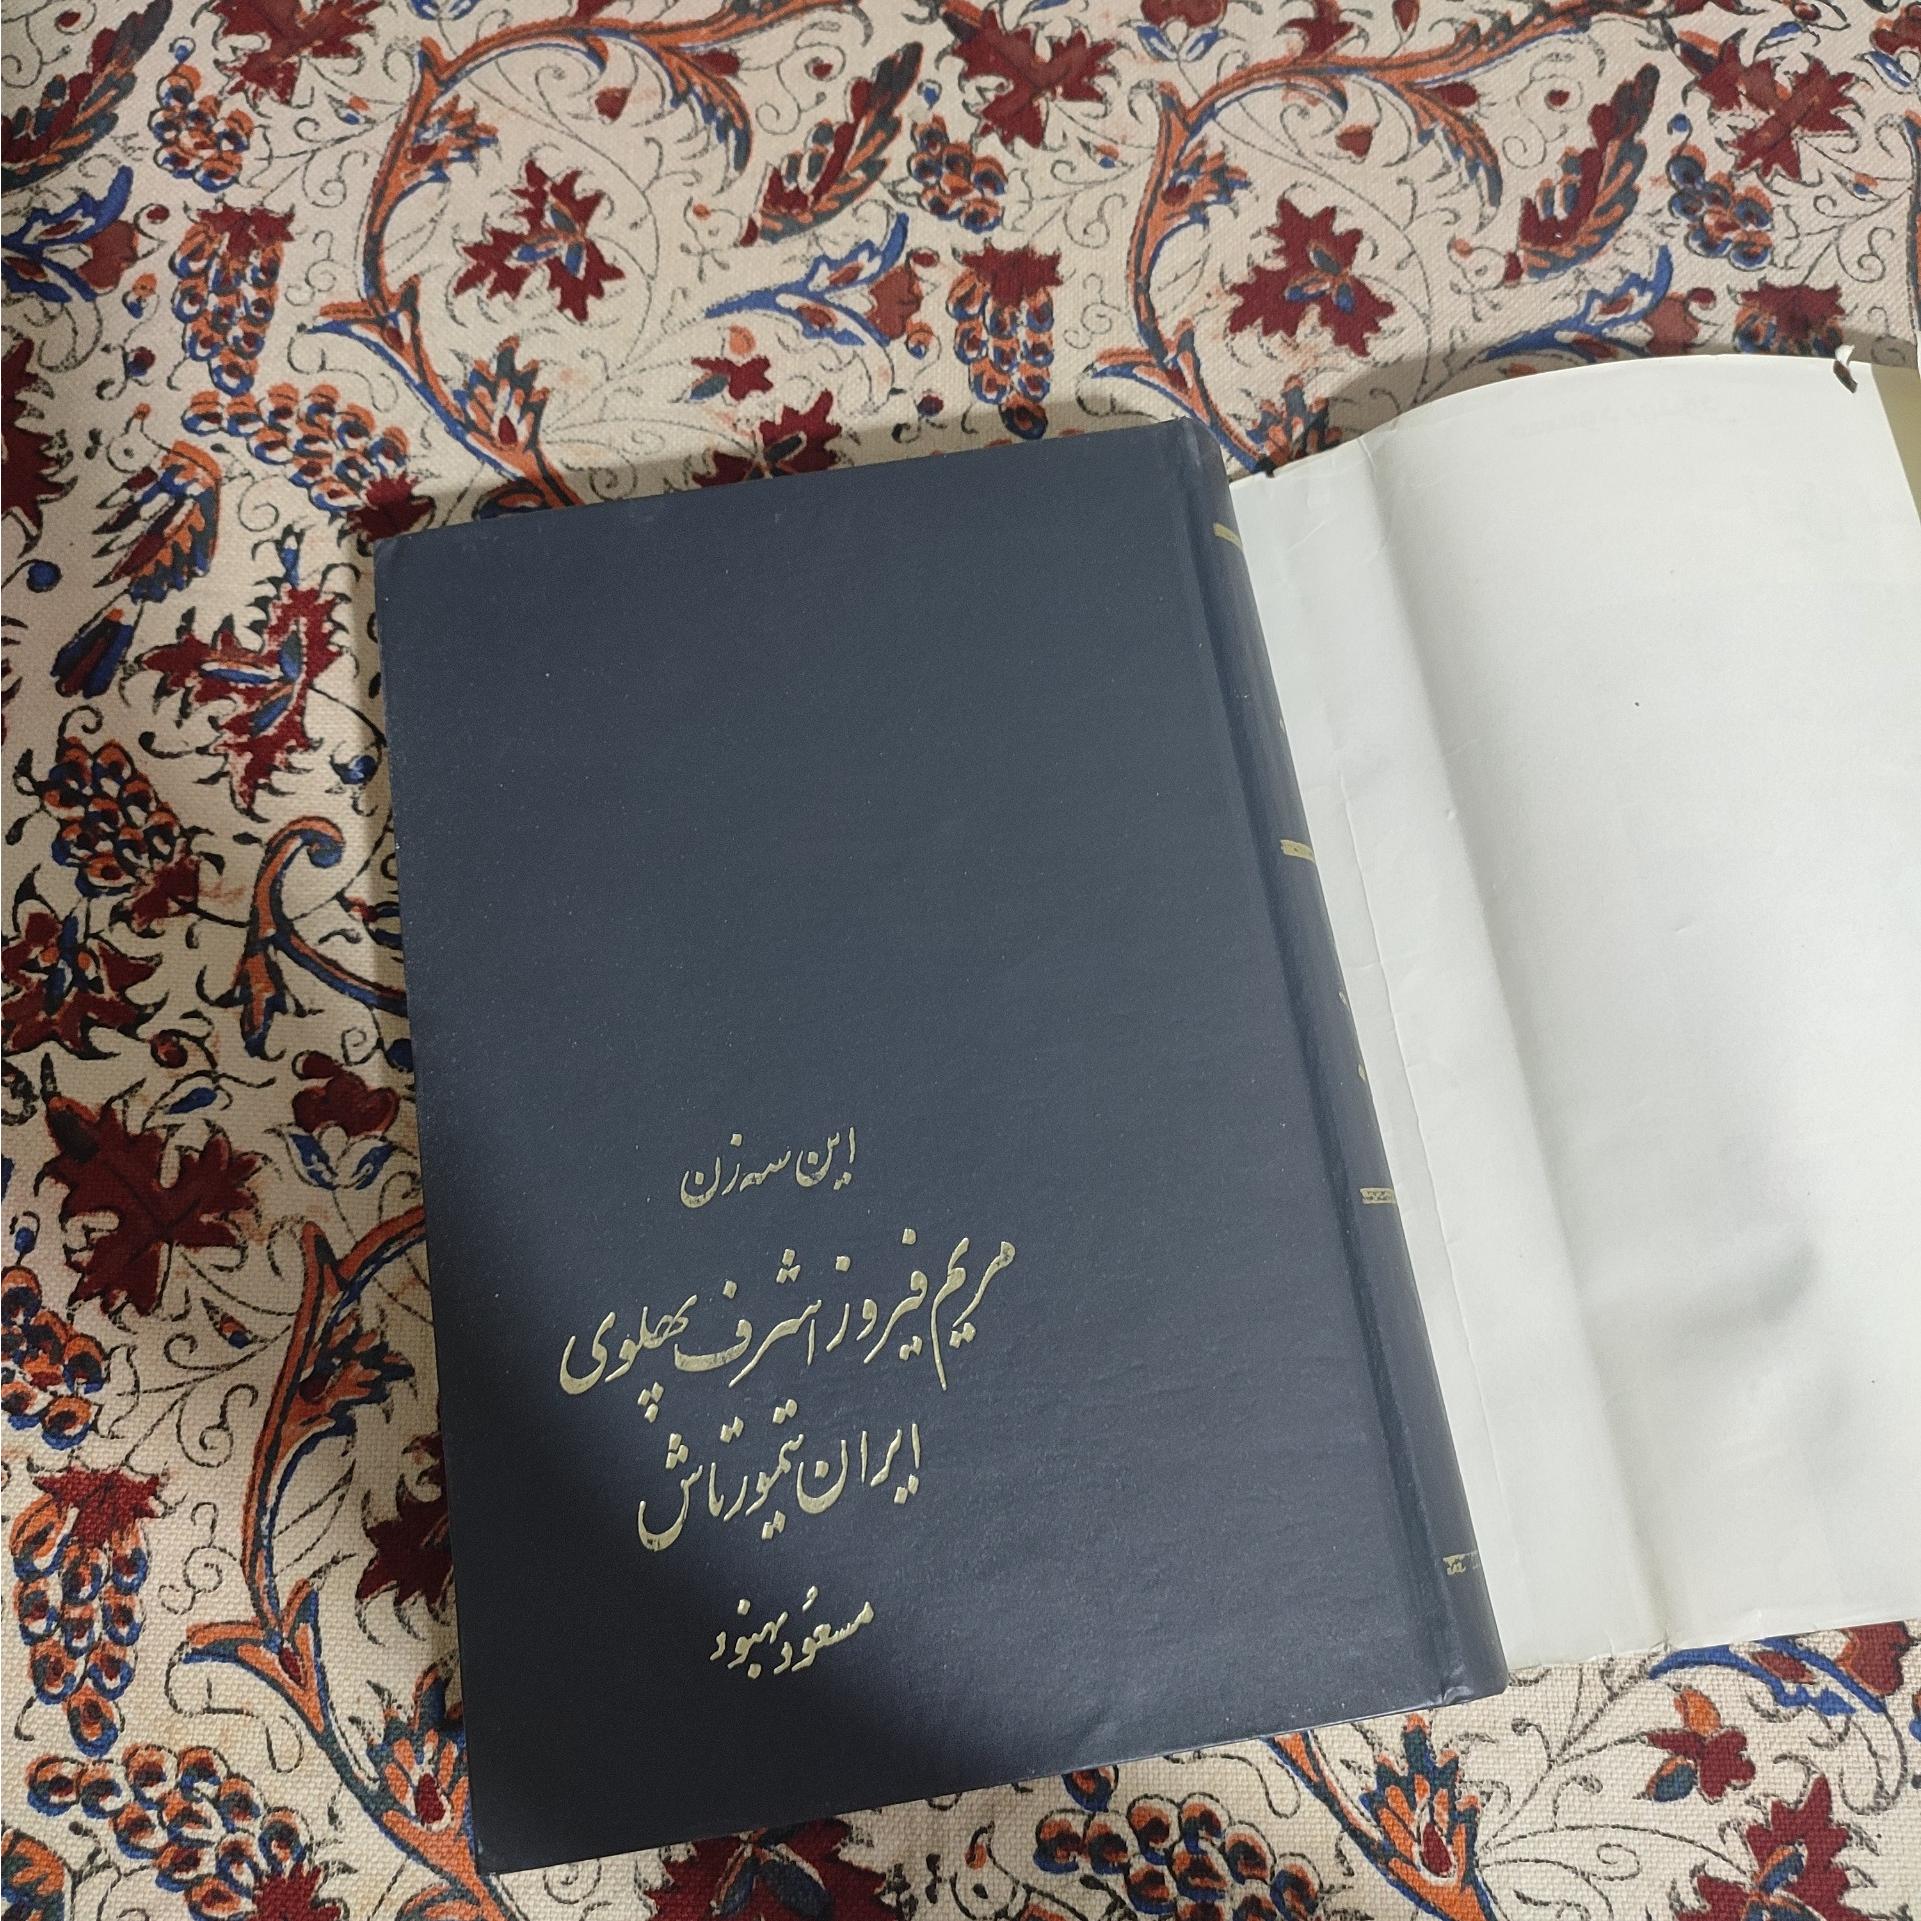 این سه زن
مریم فیروز اشرف پهلوی
ایران تیمورتاش
مسعُود بهنود